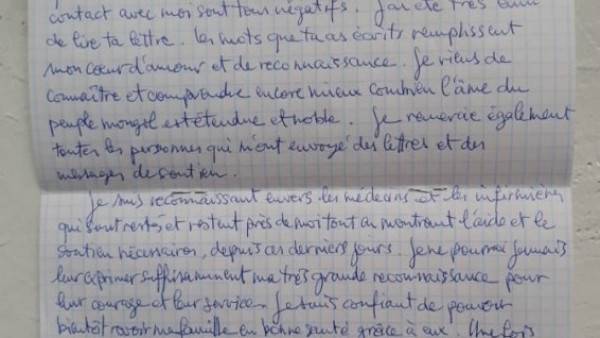 contact avec moi sont tous négatifs. J'ai été très ému
de lire ta lettre. Les mots que tu as écrits remplissent
mon cœur d'amour et de reconnaissance. Je viens de
connaître et comprendre encore mieux combien l'âme du
peuple mongol est étendue et noble. Je remercie également
toutes les personnes qui m'ont envoyé des lettres et des
messages de soutien.
Je suis reconnaissant envers les médecins et les infirmières
qui sont restés et restent près de moi tout en montrant l'aide et le
soutien nécessaires, depuis ces derniers jours. Je ne pourrai jamais
leur exprimer suffisamment ma très grande reconnaissance pour
leur courage et leur service. Je suis confiant de pouvoir
bientôt revoir ma famille en bonne santé grâce à eux. Une fois